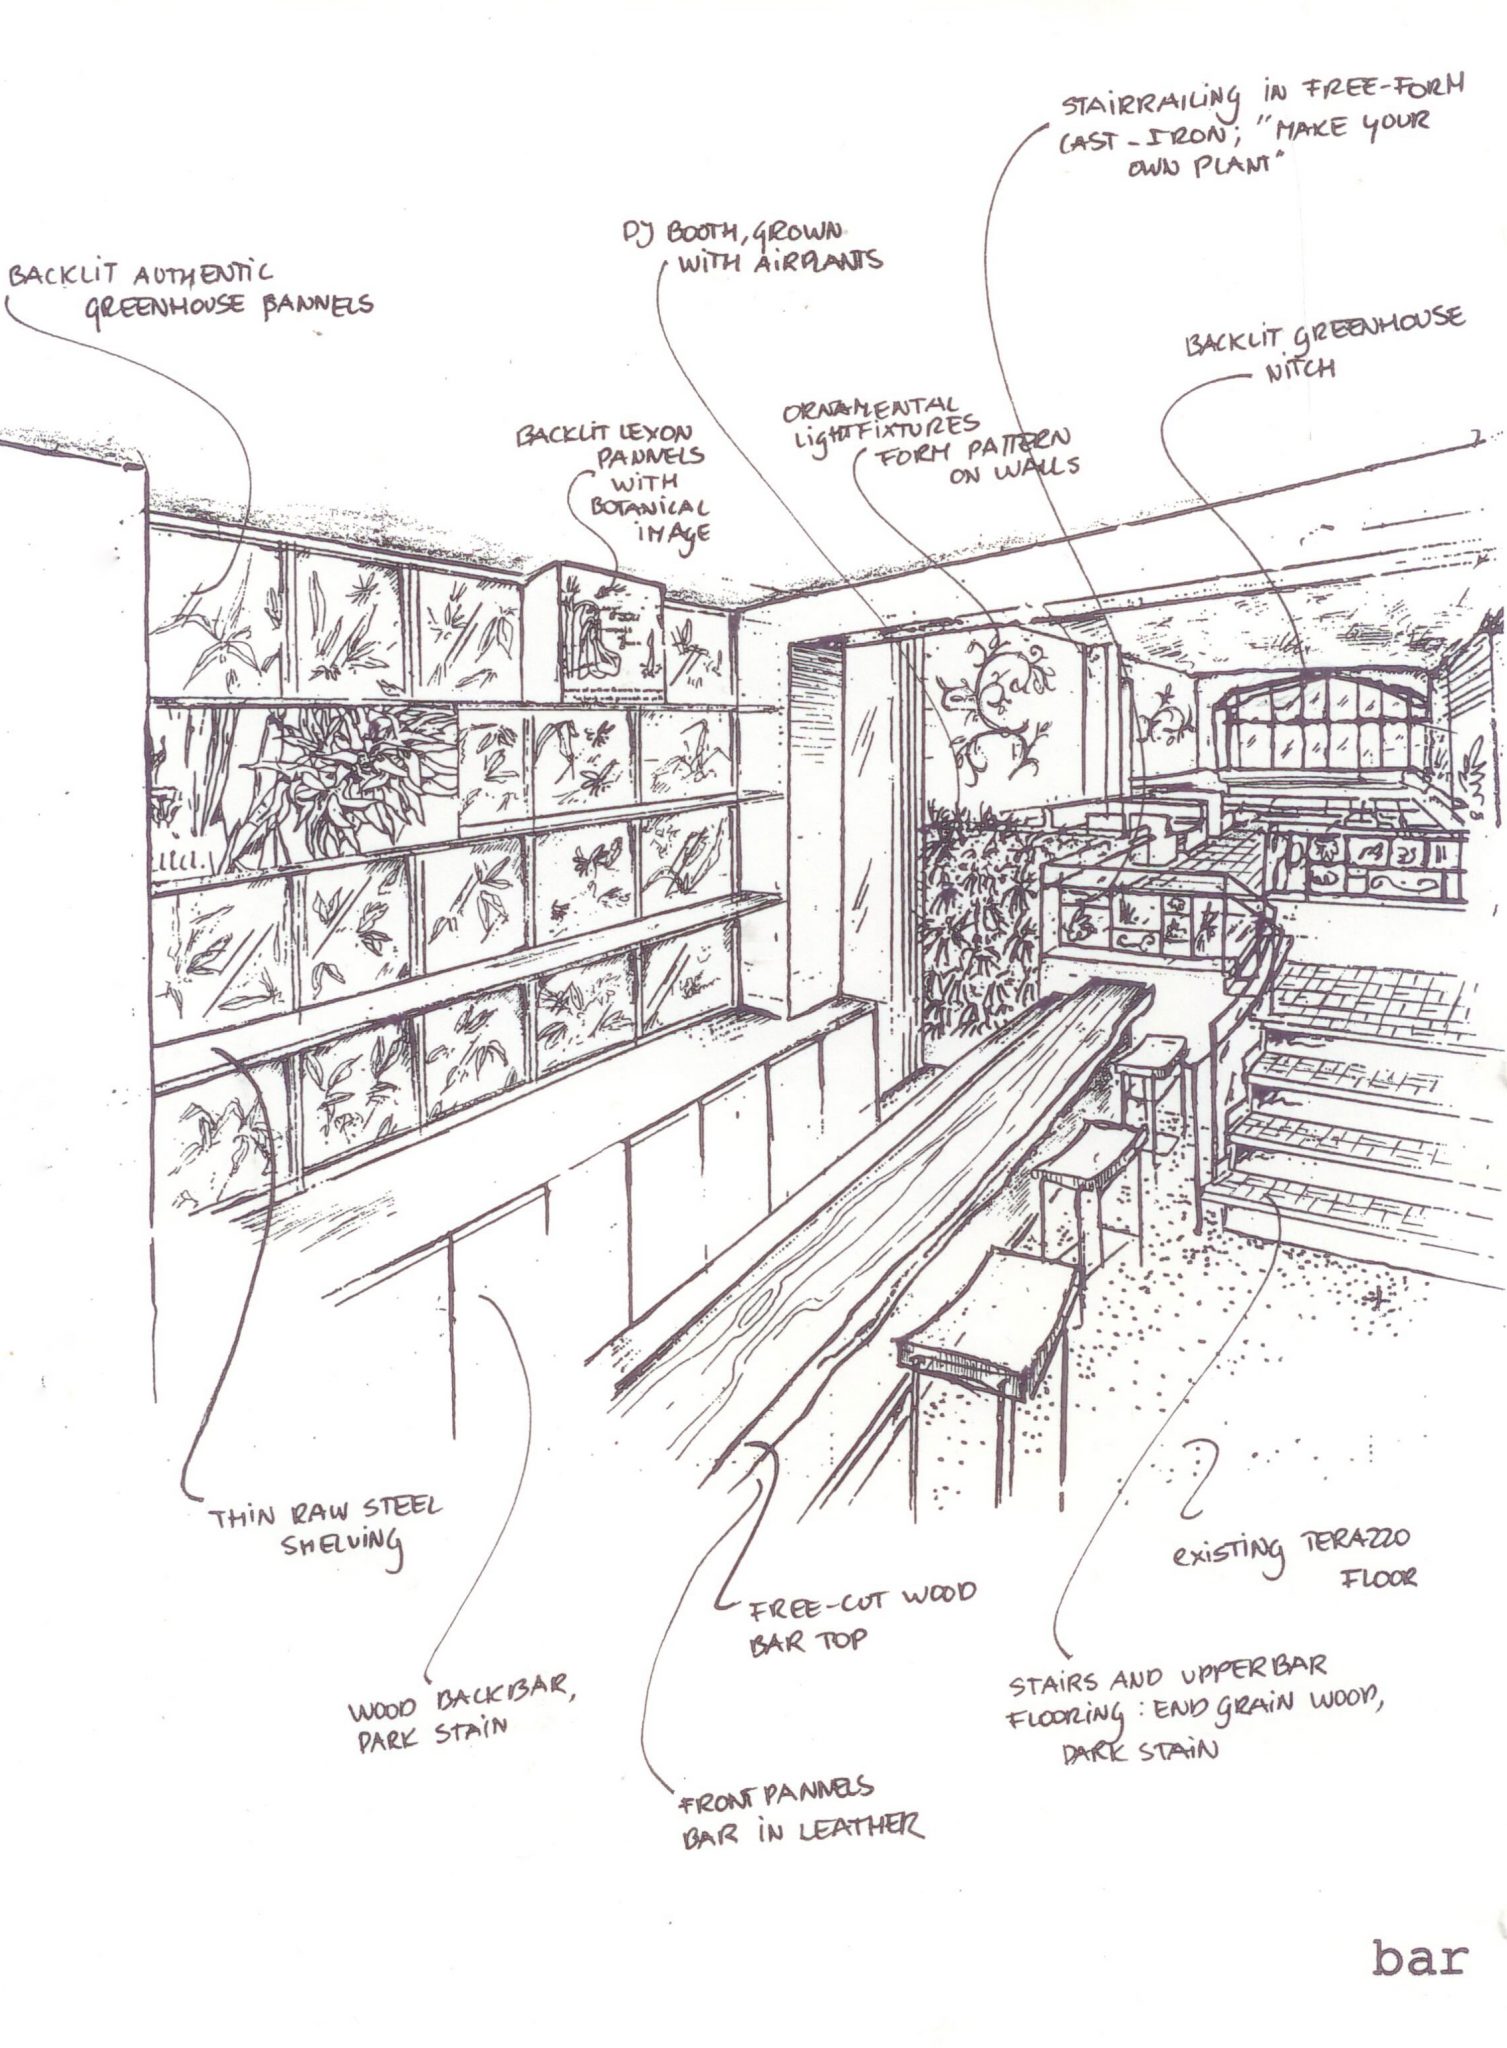 STAIRRAILING IN FREE-FORM
CAST-IRON; "MAKE YOUR
OWN PLANT"
DJ BOOTH, GROWN
WITH AIRPLANTS
BACKLIT AUTHENTIC
GREENHOUSE PANNELS
BACKLIT GREENHOUSE
NITCH
ORNAMENTAL
LIGHTFIXTURES
FORM PATTERN
ON WALLS
BACKLIT LEXON
PANNELS
WITH
BOTANICAL
IMAGE
THIN RAW STEEL
SHELVING
EXISTING TERAZZO
FLOOR
FREE-CUT WOOD
BAR TOP
WOOD BACKBAR,
DARK STAIN
STAIRS AND UPPERBAR
FLOORING: END GRAIN WOOD,
DARK STAIN
FRONTPANNELS
BAR IN LEATHER
bar